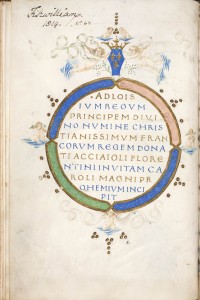 Fitzwilliam
1819.
AD LOIS
IVM REGVM
PRINCIPEM DIVI
NO NVMINE CHRIS
TIANISSIMVM FRAN
CORVM REGEM DONA
TI ACCIAIOLI FLORE
NTINI IN VITAM CA
ROLI MAGNI PR
OHEMIVM INCI
PIT